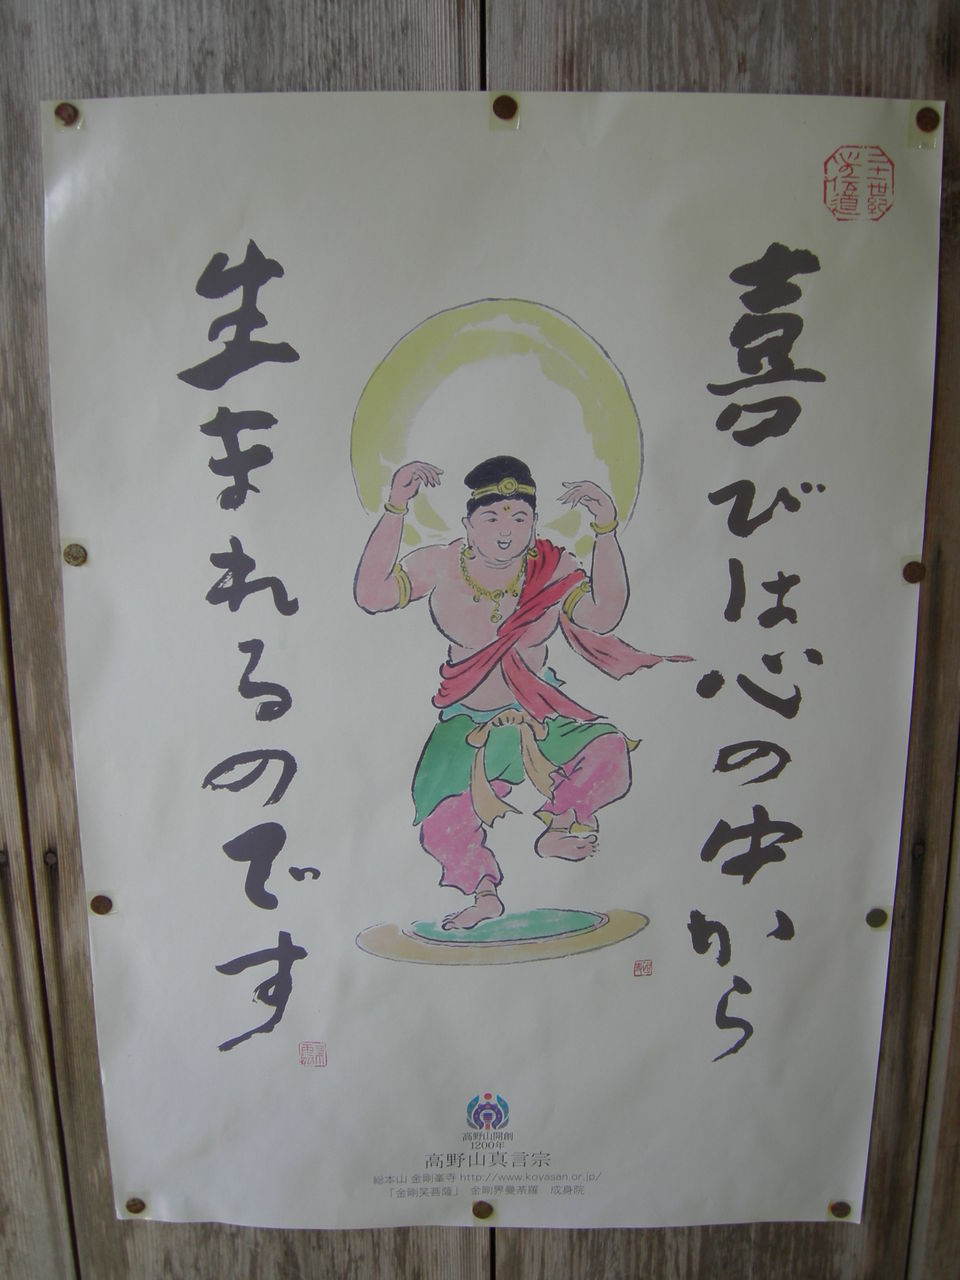 二十一世紀
心の伝道
喜びは心の中から
生まれるのです
高野山開創
1200年
高野山真言宗
総本山 金剛峯寺 http://www.koyasan.or.jp/
「金剛笑菩薩」 金剛界曼荼羅 成身院